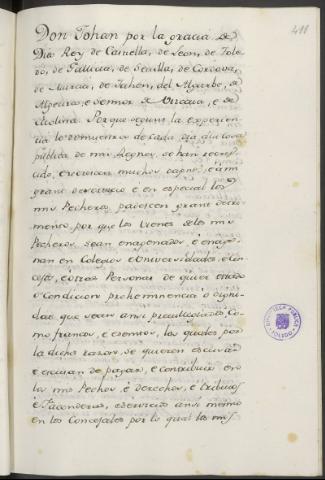 411
Don Johan por la gracia de
Dios Rey de Castella, de Leon, de Tole-
do, de Gallicia, de Sevilla, de Cordova,
de Murcia, de Jahen, del Algarbe, de
Algecira, e Señor de Vizcaya, e de
Molina. Por que segund la experien-
cia lo demuestra de cada dia a la cosa
publica de mis Regnos, se han recres-
cido, e recrescen muchos dapnos, e a mi
grant deservicio e en especial los
mis Pecheros padescen grant detri-
mento, por que los bienes de los mis
Pecheros, sean enagenados e enage-
nan en Colegios e Universidades e Con-
cejos, e otras Personas de quier estado
o condicion prehominencia o digni-
dat que sean mis previllejados, co-
mo francos, e esentos, los quales por
la dicha razon, se quieren escusar
e escusan de pagar, e contribuir en
los mis Pechos e derechos, e tributos
e facenderas, e servicios ansi mesmo
en los Concejales por lo qual los mis
BIBLIOTECA PUBLICA
TOLEDO